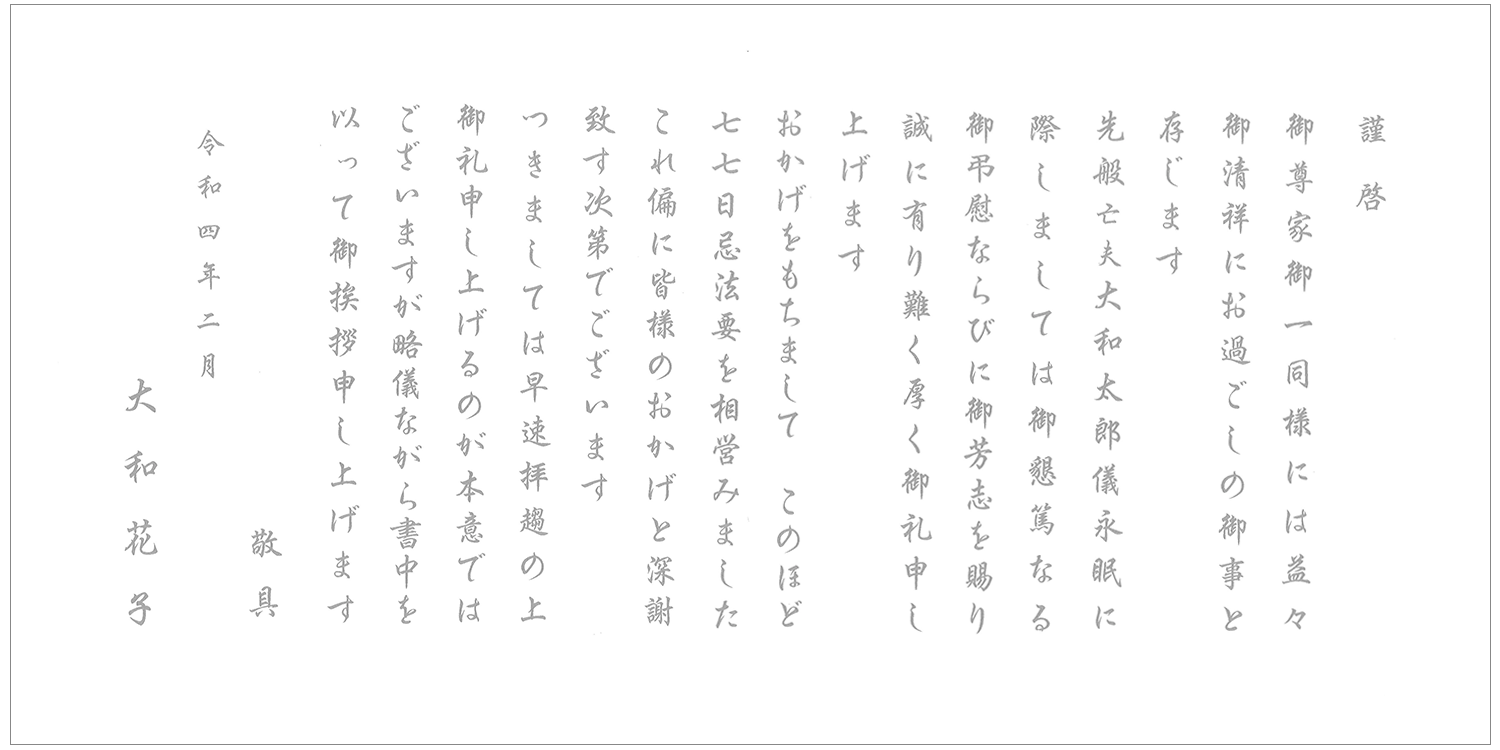 謹啓
御尊家御一同様には益々
御清祥にお過ごしの御事と
存じます
先般亡夫大和太郎儀永眠に
際しましては御懇篤なる
御弔慰ならびに御芳志を賜り
誠に有り難く厚く御礼申し
上げます
おかげをもちまして　このほど
七七日忌法要を相営みました
これ偏に皆様のおかげと深謝
致す次第でございます
つきましては早速拝趨の上
御礼申し上げるのが本意では
ございますが略儀ながら書中を
以って御挨拶申し上げます
敬具
令和四年二月
大和花子